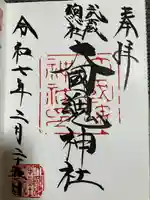 奉拝
武蔵
総社
大國魂神社
令和七年二月二十五日